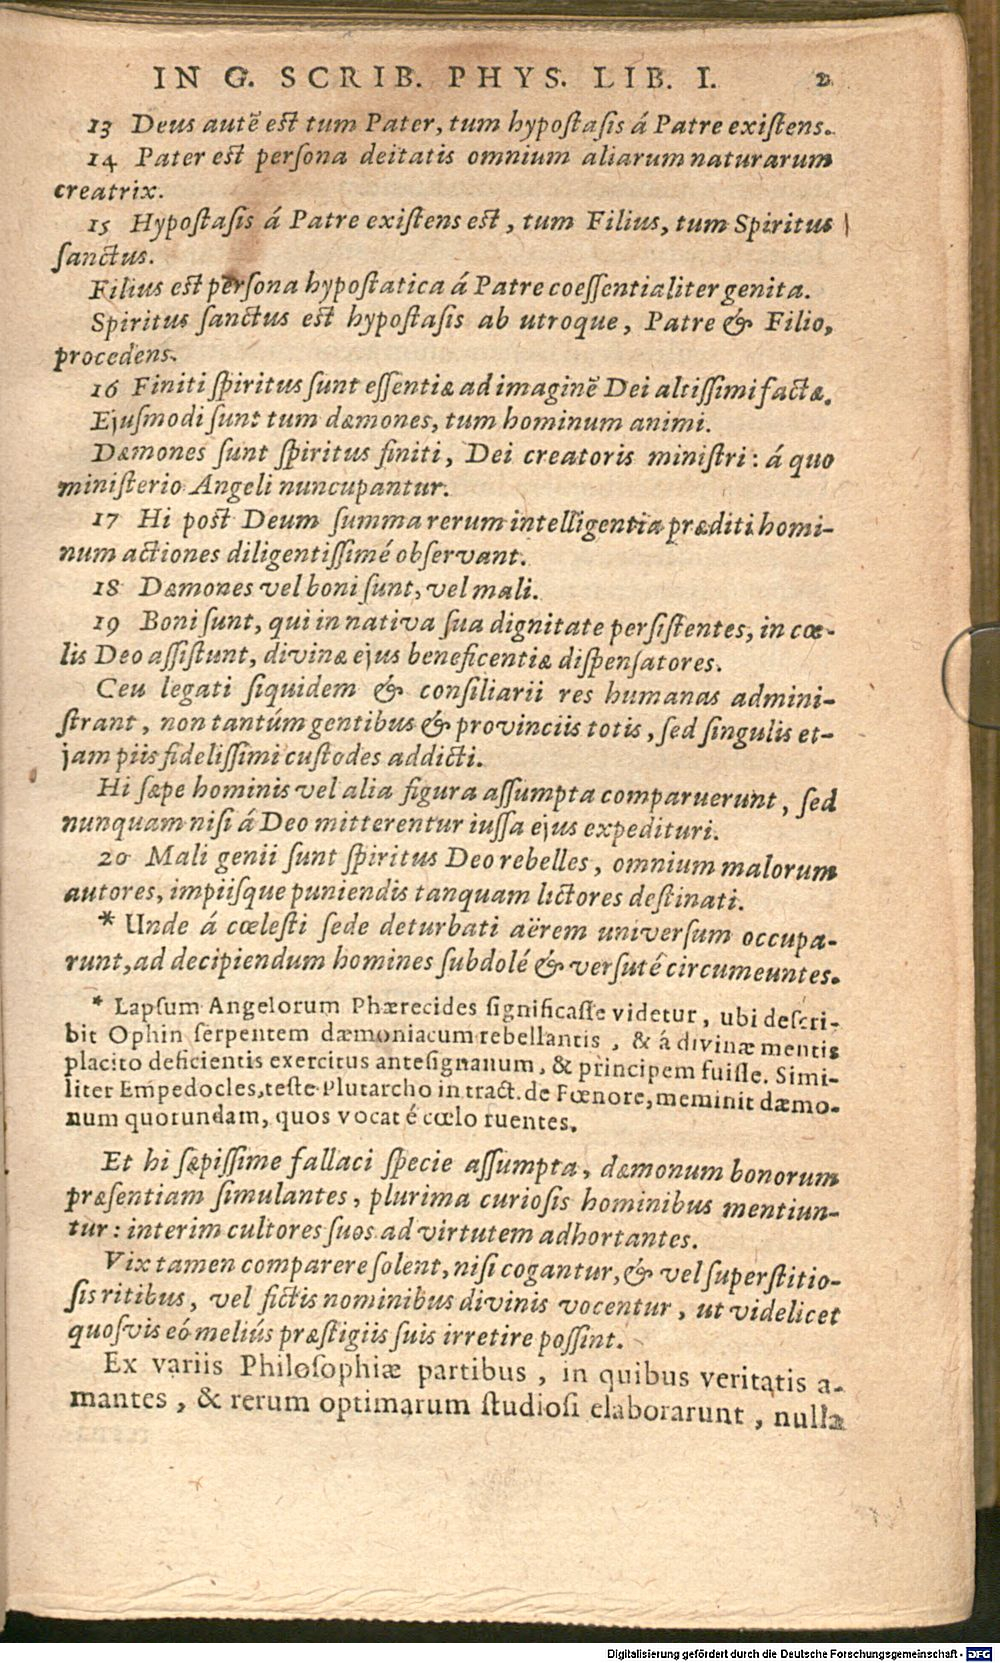 IN G. SCRIB. PHYS. LIB. I. 2
13 Deus autē est tum Pater, tum hypoſtaſis á Patre exiſtens.
14 Pater est perſona deitatis omnium aliarum naturarum
creatrix.
15 Hypoſtaſis á Patre exiſtens est, tum Filius, tum Spiritus
ſanctus.
Filius est perſona hypoſtatica á Patre coeſſentialiter genita.
Spiritus ſanctus est hypoſtaſis ab utroque, Patre & Filio,
procedens.
16 Finiti ſpiritus ſunt eſſentiæ ad imaginē Dei altiſſimi factæ.
Ejuſmodi ſunt tum dæmones, tum hominum animi.
Dæmones ſunt ſpiritus finiti, Dei creatoris miniſtri: á quo
miniſterio Angeli nuncupantur.
17 Hi post Deum ſumma rerum intelligentia præditi homi-
num actiones diligentiſſimé obſervant.
18 Dæmones vel boni ſunt, vel mali.
19 Boni ſunt, qui in nativa ſua dignitate perſiſtentes, in cœ-
lis Deo aſſiſtunt, divinæ ejus beneficentiæ diſpenſatores.
Ceu legati ſiquidem & conſiliarii res humanas admini-
ſtrant, non tantúm gentibus & provinciis totis, ſed ſingulis et-
jam piis fideliſſimi cuſtodes addicti.
Hi ſæpe hominis vel alia figura aſſumpta comparuerunt, ſed
nunquam niſi á Deo mitterentur iuſſa ejus expedituri.
20 Mali genii ſunt ſpiritus Deo rebelles, omnium malorum
autores, impiiſque puniendis tanquam lictores deſtinati.
* Unde á cœleſti ſede deturbati aërem univerſum occupa-
runt, ad decipiendum homines ſubdolé & verſuté circumeuntes.
* Lapſum Angelorum Phærecides ſignificaſſe videtur, ubi deſcri-
bit Ophin ſerpentem dæmoniacum rebellantis, & á divinæ mentis
placito deficientis exercitus anteſignanum, & principem fuiſſe. Simi-
liter Empedocles, teſte Plutarcho in tract. de Fœnore, meminit dæmo-
num quorundam, quos vocat é cœlo ruentes.
Et hi ſæpiſſime fallaci ſpecie aſſumpta, dæmonum bonorum
præſentiam ſimulantes, plurima curioſis hominibus mentiun-
tur: interim cultores ſuos ad virtutem adhortantes.
Vix tamen comparere ſolent, niſi cogantur, & vel ſuperſtitio-
ſis ritibus, vel fictis nominibus divinis vocentur, ut videlicet
quoſvis eó meliús præſtigiis ſuis irretire poſſint.
Ex variis Philoſophiæ partibus, in quibus veritatis a-
mantes, & rerum optimarum ſtudioſi elaborarunt, nulla
Digitalisierung gefördert durch die Deutsche Forschungsgemeinschaft - DFG